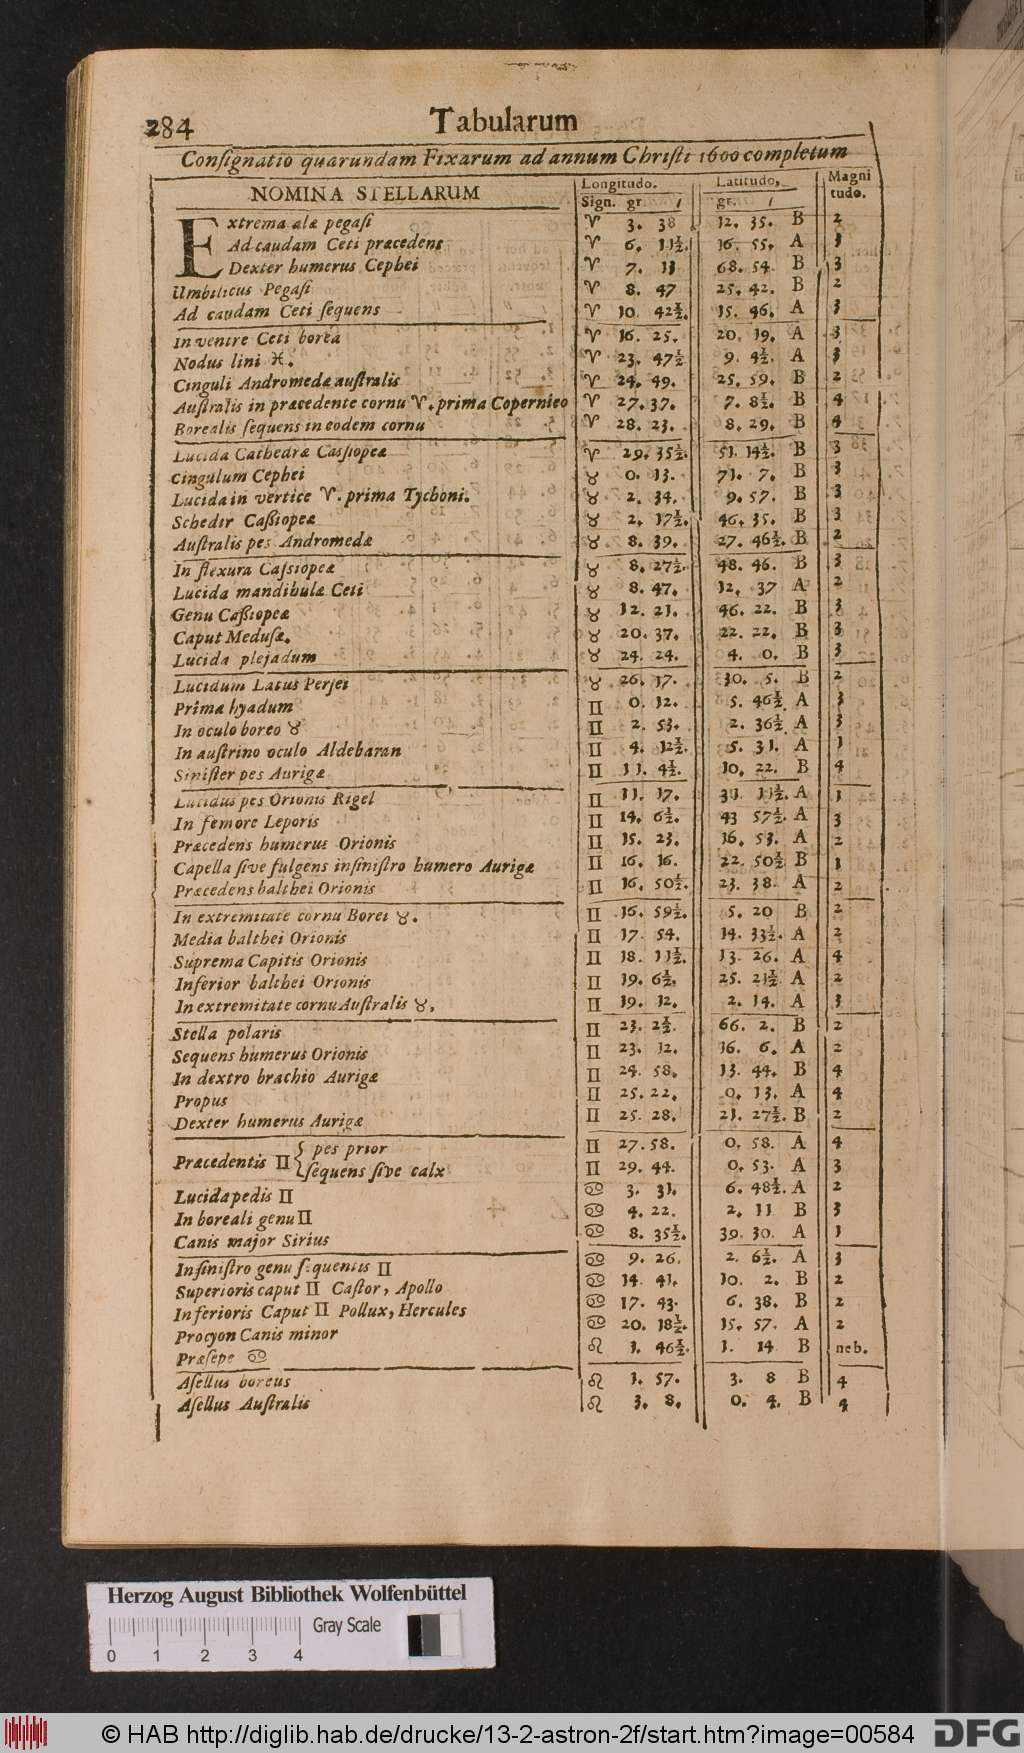 284
Tabularum
Consignatio quarundam Fixarum ad annum Christi 1600 completum
NOMINA STELLARUM Longitudo. Latitudo, Magni
Sign. gr. ı gr. ı tudo.
Extrema alæ pegasi ♈ 3. 38 12. 35. B 2
Ad caudam Ceti præcedens ♈ 6. 11½. 16. 55. A 3
Dexter humerus Cephei ♈ 7. 11 68. 54. B 3
Umbilicus Pegasi ♈ 8. 47 25. 42. B 2
Ad caudam Ceti sequens ♈ 10. 42½. 15. 46. A 3
in ventre Ceti borea ♈ 16. 25. 20. 19. A 3
Nodus lini ♓. ♈ 23. 47½ 9. 4½. A 3
Cinguli Andromedæ australis ♈ 24. 49. 25. 59. B 2
Australis in præcedente cornu ♈. prima Copernico ♈ 27. 37. 7. 8½. B 4
Borealis sequens in eodem cornu ♈ 28. 23. 8. 29. B 4
Lucida Cathedræ Cassiopeæ ♈ 29. 35½. 51. 14½. B 3
Cingulum Cephei ♉ 0. 13. 71. 7. B 3
Lucida in vertice ♈. prima Tychoni. ♉ 2. 34. 9. 57. B 3
Schedir Cassiopeæ ♉ 2. 17½. 46. 35. B 3
Australis pes Andromedæ ♉ 8. 39. 27. 46½. B 2
In flexura Cassiopeæ ♉ 8. 27½. 48. 46. B 3
Lucida mandibulæ Ceti ♉ 8. 47. 12. 37 A 2
Genu Cassiopeæ ♉ 12. 21. 46. 22. B 3
Caput Medusæ. ♉ 20. 37. 22. 22. B 3
Lucida plejadum ♉ 24. 24. 4. 0. B 3
Lucidum Latus Persei ♉ 26. 17. 30. 5. B 2
Prima hyadum ♊ 0. 12. 5. 46½ A 3
In oculo boreo ♉ ♊ 2. 53. 2. 36½ A 3
In austrino oculo Aldebaran ♊ 4. 12½. 5. 31. A 1
Sinister pes Aurigæ ♊ 11. 4½. 10. 22. B 4
Lucidus pes Orionis Rigel ♊ 11. 17. 31. 11½. A 1
In femore Leporis ♊ 14. 6½. 43 57½. A 3
Præcedens humerus Orionis ♊ 15. 23. 16. 53. A 2
Capella sive fulgens in sinistro humero Aurigæ ♊ 16. 16. 22. 50½ B 1
Præcedens balthei Orionis ♊ 16. 50½. 23. 38. A 2
In extremitate cornu Borei ♉. ♊ 16. 59½. 5. 20 B 2
Media balthei Orionis ♊ 17. 54. 24. 33½. A 2
Suprema Capitis Orionis ♊ 18. 11½. 13. 26. A 4
Inferior balthei Orionis ♊ 19. 6½. 25. 21½. A 2
In extremitate cornu Australis ♉, ♊ 19. 12. 2. 14. A 3
Stella polaris ♊ 23. 2½. 66. 2. B 2
Sequens humerus Orionis ♊ 23. 12. 16. 6. A 2
In dextro brachio Aurigæ ♊ 24. 58. 13. 44. B 4
Propus ♊ 25. 22. 0. 13. A 4
Dexter humerus Aurigæ ♊ 25. 28. 21. 27½. B 2
Præcedentis ♊ { pes prior ♊ 27. 58. 0. 58. A 4
sequens sive calx ♊ 29. 44. 0. 53. A 3
Lucida pedis ♊ ♋ 3. 31. 6. 48½. A 2
In boreali genu ♊ ♋ 4. 22. 2. 11 B 3
Canis major Sirius ♋ 8. 35½. 39. 30. A 1
In sinistro genu sequentis ♊ ♋ 9. 26. 2. 6½. A 3
Superioris caput ♊ Castor, Apollo ♋ 14. 41. 10. 2. B 2
Inferioris Caput ♊ Pollux, Hercules ♋ 17. 43. 6. 38. B 2
Procyon Canis minor ♋ 20. 18½. 15. 57. A 2
Præsepe ♋ ♌ 1. 46½. 1. 14 B neb.
Asellus boreus ♌ 1. 57. 3. 8 B 4
Asellus Australis ♌ 3. 8. 0. 4. B 4
Herzog August Bibliothek Wolfenbüttel
Gray Scale
0 1 2 3 4
© HAB http://diglib.hab.de/drucke/13-2-astron-2f/start.htm?image=00584 DFG